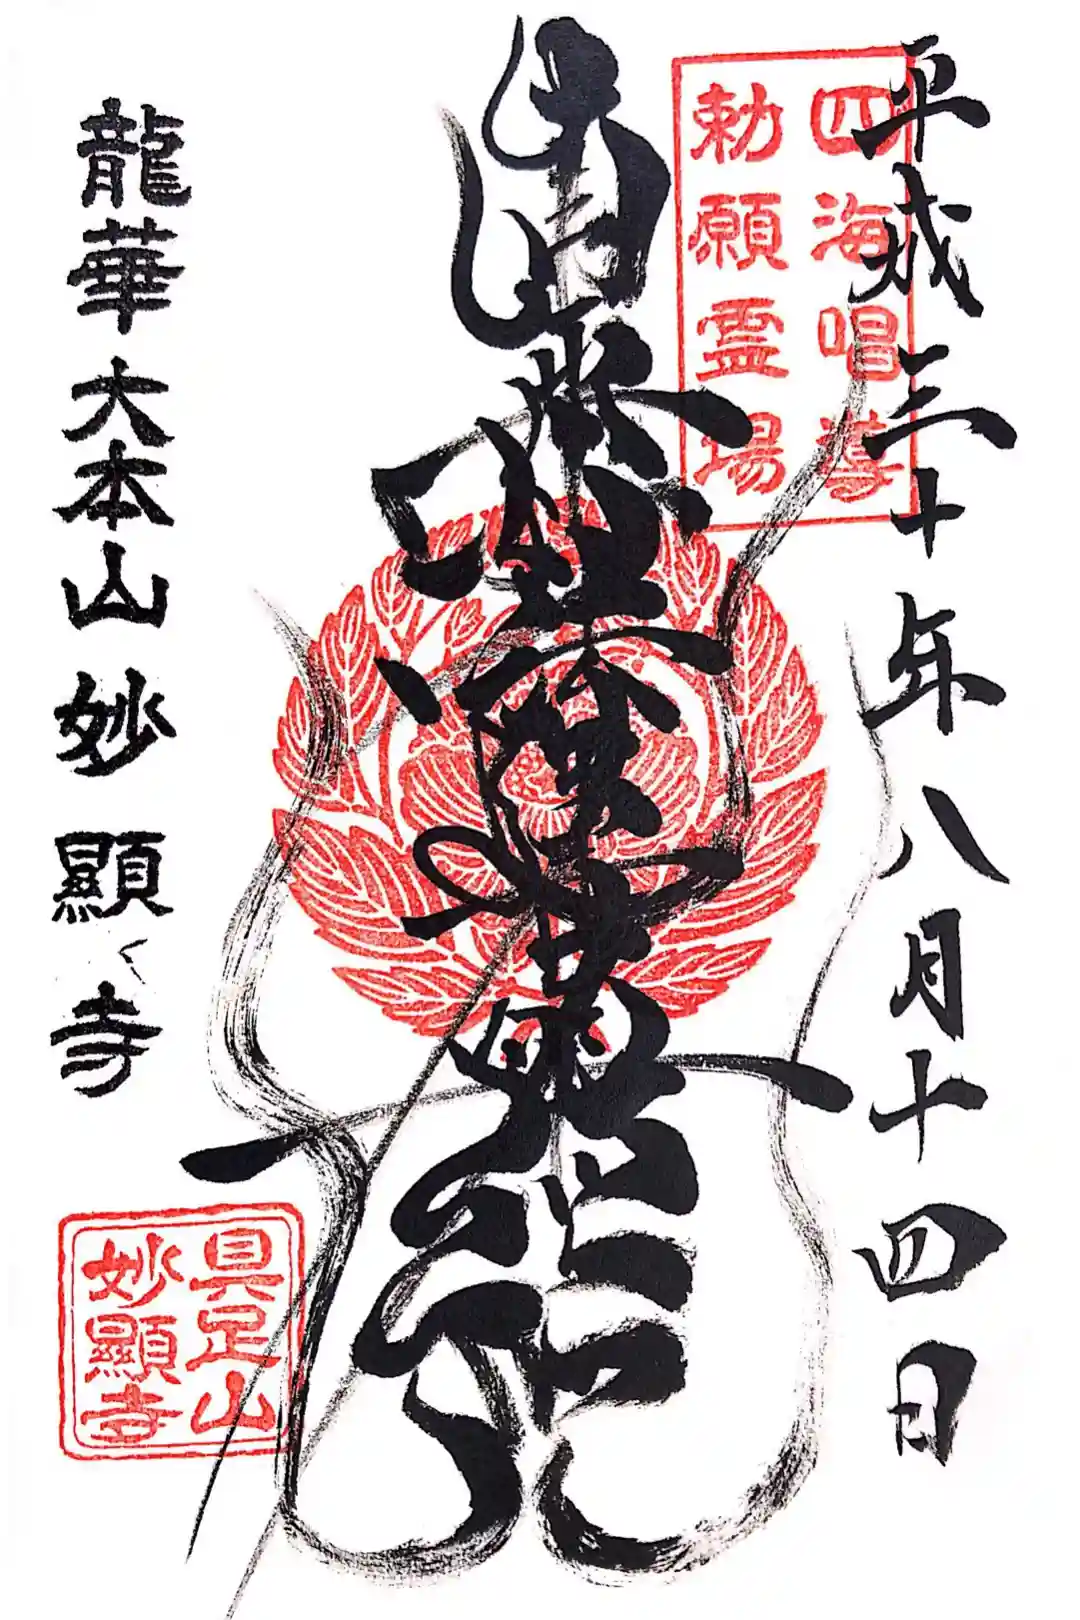 平成三十年八月十四日
四海唱導
勅願霊場
南無妙法蓮華経
龍華 大本山 妙顯寺
具足山
妙顯寺